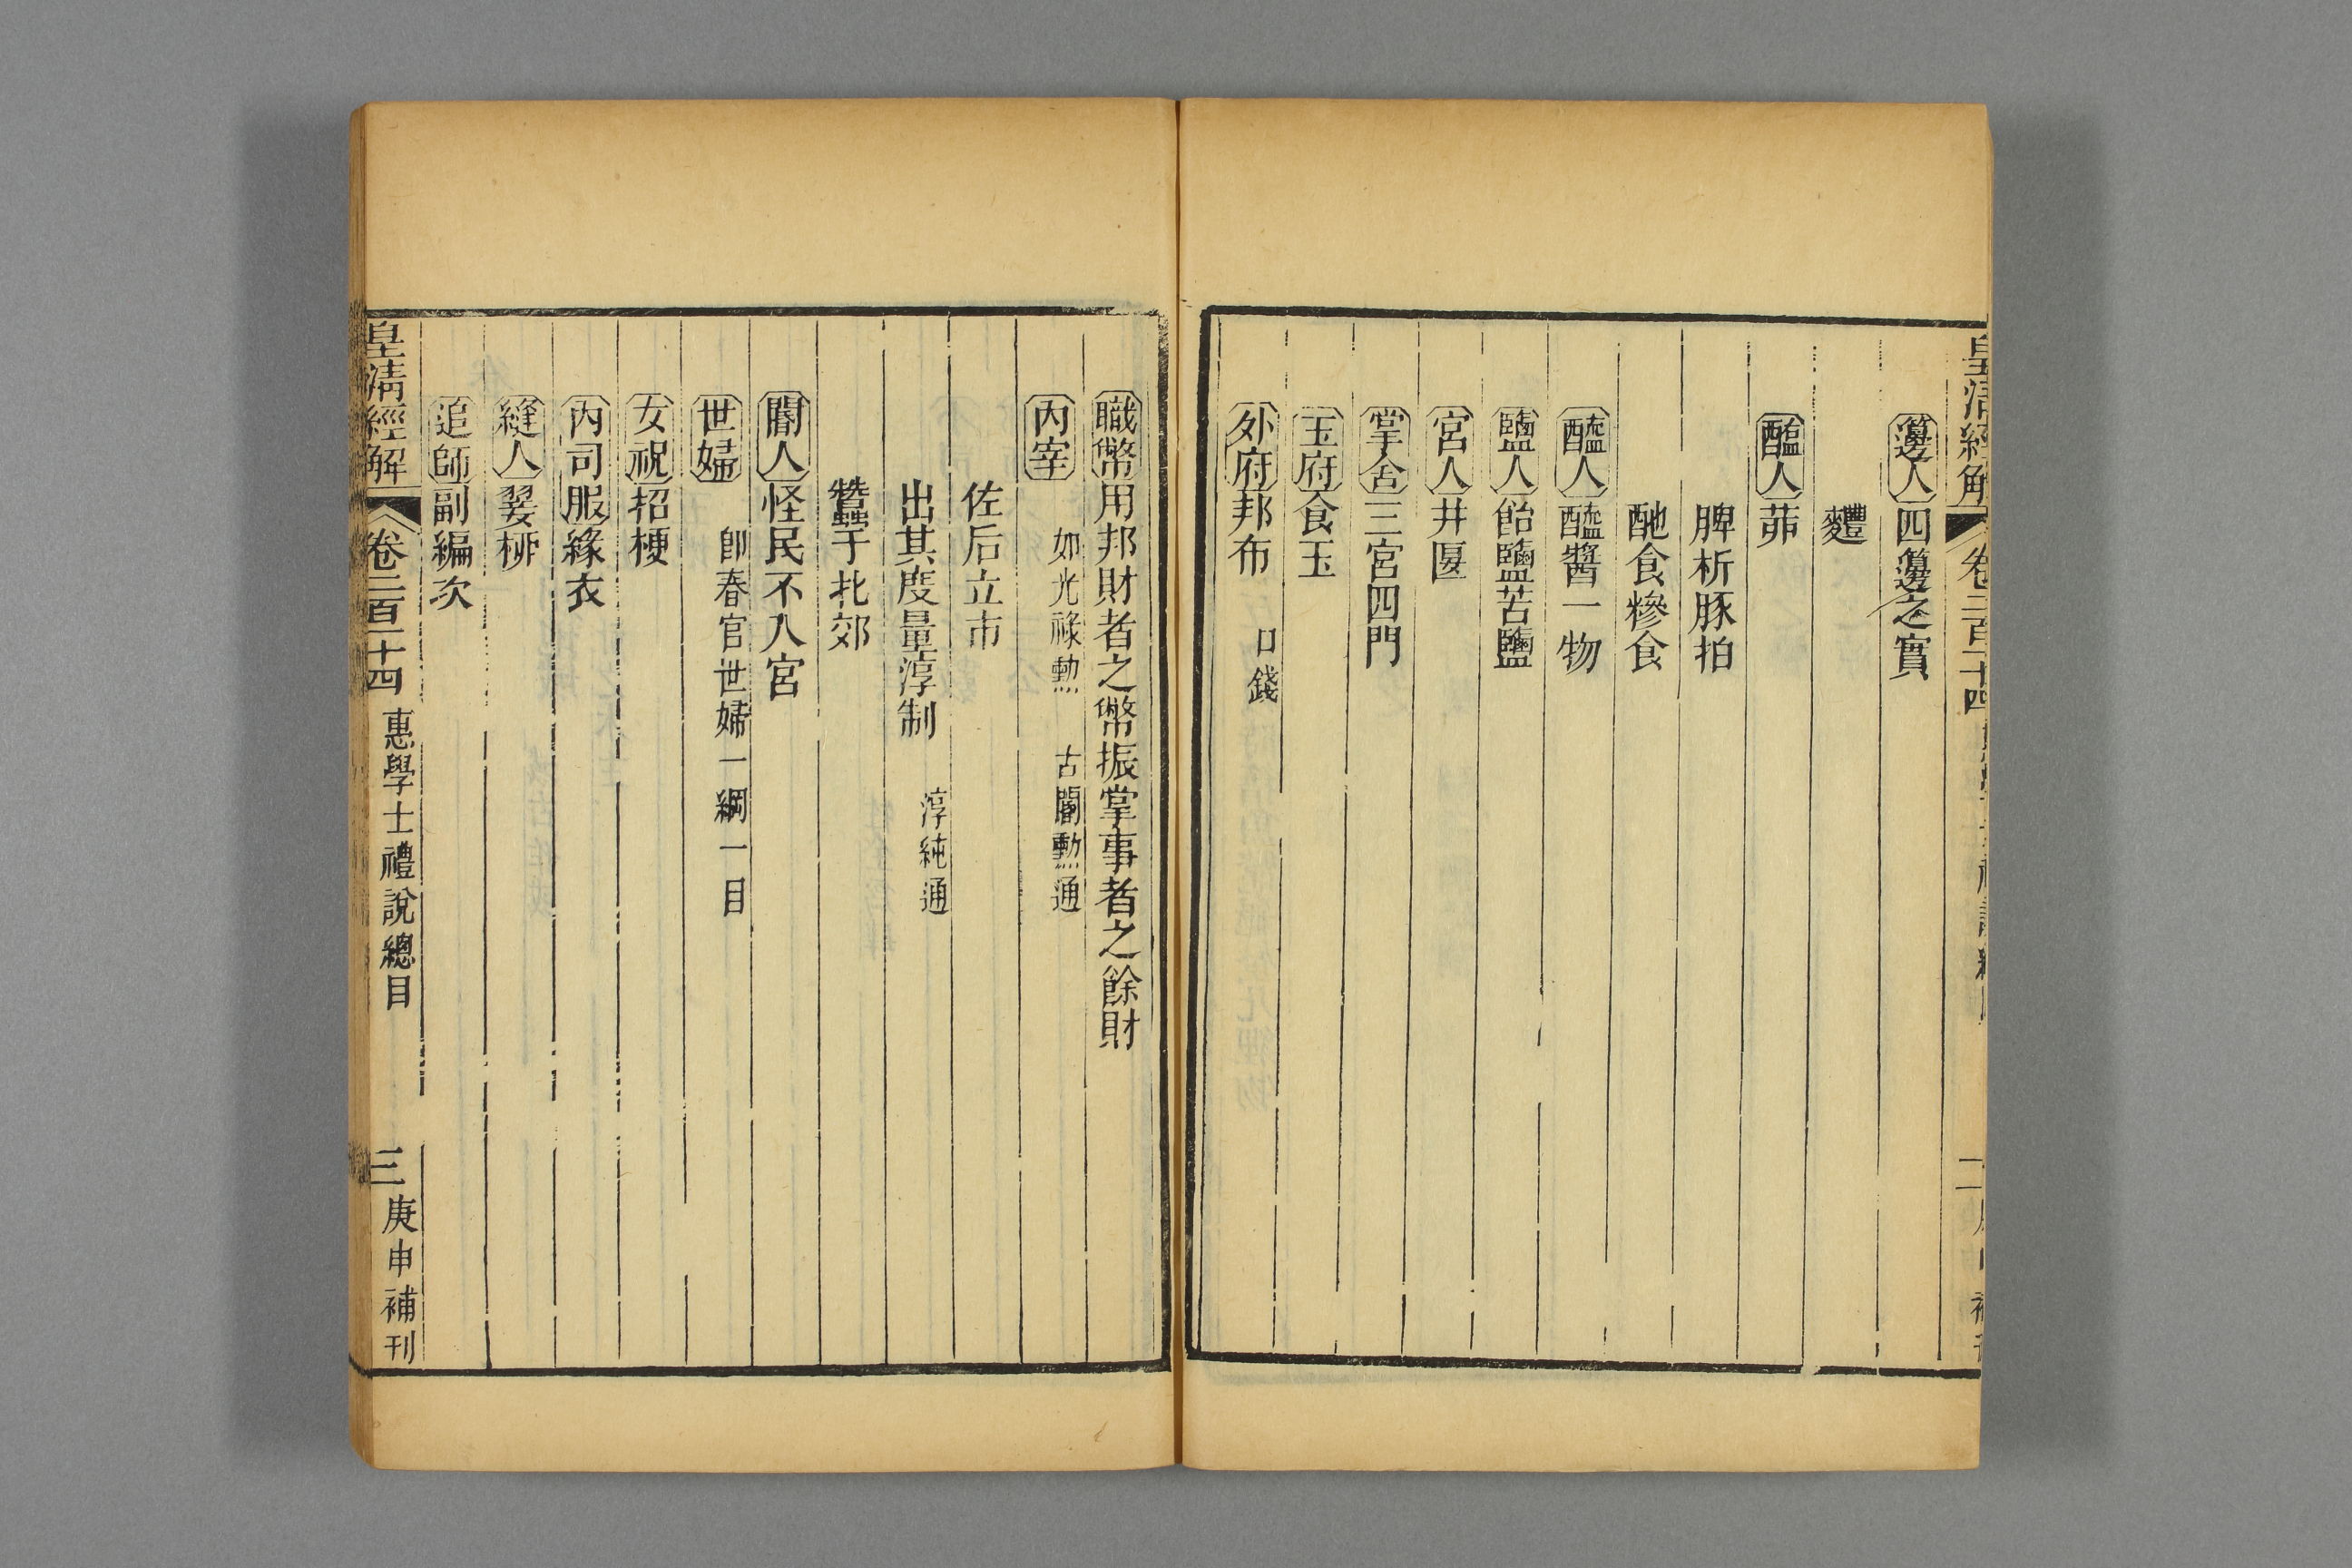 皇清經解 卷二百十四
籩人四籩之實
麷
醢人茆
脾析豚拍
酏食糝食
醯人醯醬一物
鹽人飴鹽苦鹽
宮人井匽
掌舍三宮四門
玉府食玉
外府邦布 口錢
職幣用邦財者之幣振掌事者之餘財
內宰 如光祿勲 古閽勲通
佐后立市
出其度量淳制 淳純通
蠶于北郊
閽人怪民不入宮
世婦 卽春官世婦一綱一目
女祝招梗
內司服緣衣
縫人翣柳
追師副編次
皇清經解 卷二百十四 惠學士禮說總目 三 庚申補刊